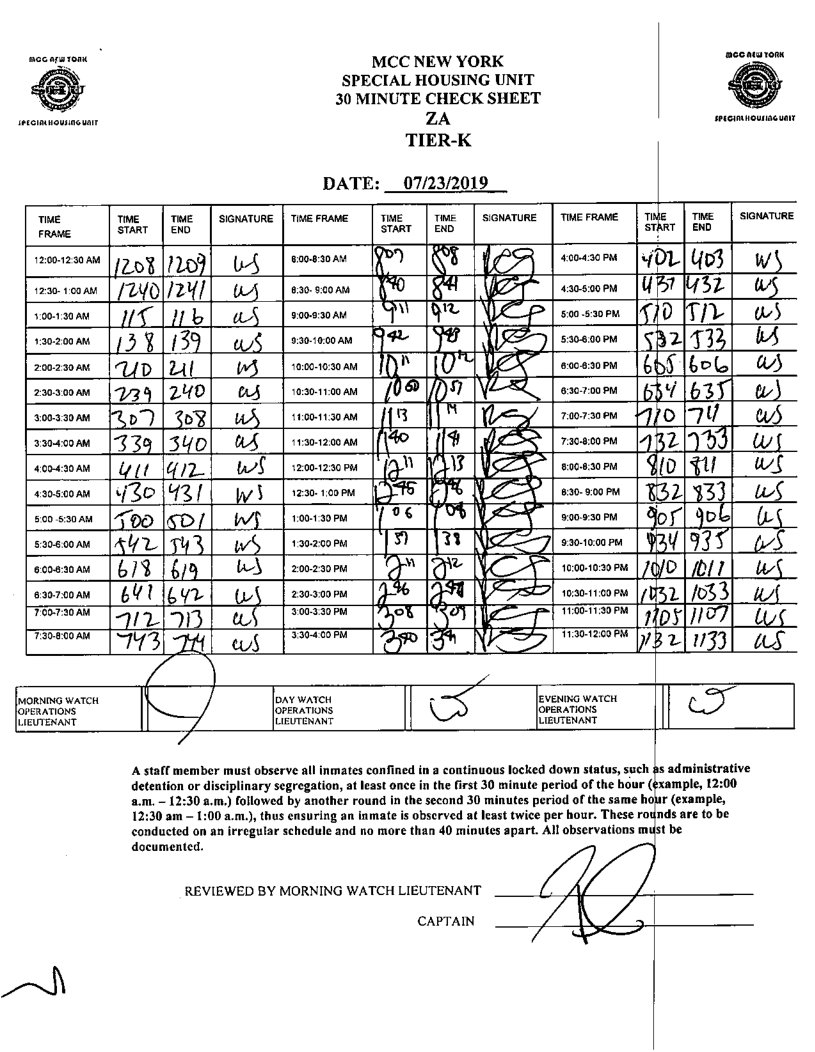 MCC NEW YORK
SPECIAL HOUSING UNIT
MCC NEW YORK
SPECIAL HOUSING UNIT
30 MINUTE CHECK SHEET
ZA
TIER-K
MCC NEW YORK
SPECIAL HOUSING UNIT
DATE: 07/23/2019
TIME FRAME TIME START TIME END SIGNATURE TIME FRAME TIME START TIME END SIGNATURE TIME FRAME TIME START TIME END SIGNATURE
12:00-12:30 AM 1208 1209 WS 8:00-8:30 AM 807 808 4:00-4:30 PM 402 403 WS
12:30- 1:00 AM 1240 1241 WS 8:30- 9:00 AM 840 841 4:30-5:00 PM 431 432 WS
1:00-1:30 AM 115 116 WS 9:00-9:30 AM 911 912 5:00 -5:30 PM 510 512 WS
1:30-2:00 AM 138 139 WS 9:30-10:00 AM 942 943 5:30-6:00 PM 532 533 WS
2:00-2:30 AM 210 211 WS 10:00-10:30 AM 1011 1012 6:00-6:30 PM 605 606 WS
2:30-3:00 AM 239 240 WS 10:30-11:00 AM 1051 6:30-7:00 PM 634 635 WS
3:00-3:30 AM 307 308 WS 11:00-11:30 AM 1113 1114 7:00-7:30 PM 710 711 WS
3:30-4:00 AM 339 340 WS 11:30-12:00 AM 1140 1141 7:30-8:00 PM 732 733 WS
4:00-4:30 AM 411 412 WS 12:00-12:30 PM 1211 1213 8:00-8:30 PM 810 811 WS
4:30-5:00 AM 430 431 WS 12:30- 1:00 PM 1245 1246 8:30- 9:00 PM 832 833 WS
5:00 -5:30 AM 500 501 WS 1:00-1:30 PM 106 108 9:00-9:30 PM 905 906 WS
5:30-6:00 AM 542 543 WS 1:30-2:00 PM 137 138 9:30-10:00 PM 934 935 WS
6:00-6:30 AM 618 619 WS 2:00-2:30 PM 211 212 10:00-10:30 PM 1010 1011 WS
6:30-7:00 AM 641 642 WS 2:30-3:00 PM 246 247 10:30-11:00 PM 1032 1033 WS
7:00-7:30 AM 712 713 WS 3:00-3:30 PM 308 309 11:00-11:30 PM 1105 1107 WS
7:30-8:00 AM 743 744 WS 3:30-4:00 PM 340 341 11:30-12:00 PM 1132 1133 WS
MORNING WATCH OPERATIONS LIEUTENANT DAY WATCH OPERATIONS LIEUTENANT EVENING WATCH OPERATIONS LIEUTENANT
A staff member must observe all inmates confined in a continuous locked down status, such as administrative
detention or disciplinary segregation, at least once in the first 30 minute period of the hour (example, 12:00
a.m. – 12:30 a.m.) followed by another round in the second 30 minutes period of the same hour (example,
12:30 am – 1:00 a.m.), thus ensuring an inmate is observed at least twice per hour. These rounds are to be
conducted on an irregular schedule and no more than 40 minutes apart. All observations must be
documented.
REVIEWED BY MORNING WATCH LIEUTENANT
CAPTAIN